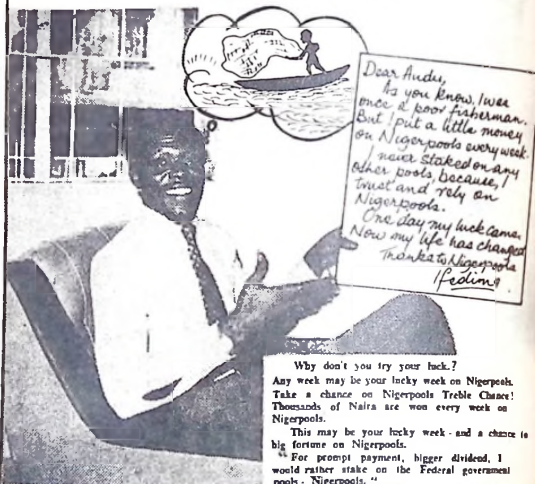 Dear Audu,
As you know, I was
once a poor fisherman.
But I put a little money
on Nigerpools every week.
I never staked on any
other pools, because, I
trust and rely on
Nigerpools.
One day my luck came.
Now my life has changed
Thanks to Nigerpools
Ifedim
Why don't you try your luck.?
Any week may be your lucky week on Nigerpools.
Take a chance on Nigerpools Treble Chance!
Thousands of Naira are won every week on
Nigerpools.
This may be your lucky week - and a chance to
big fortune on Nigerpools.
"For prompt payment, bigger dividend, I
would rather stake on the Federal government
pools - Nigerpools. "